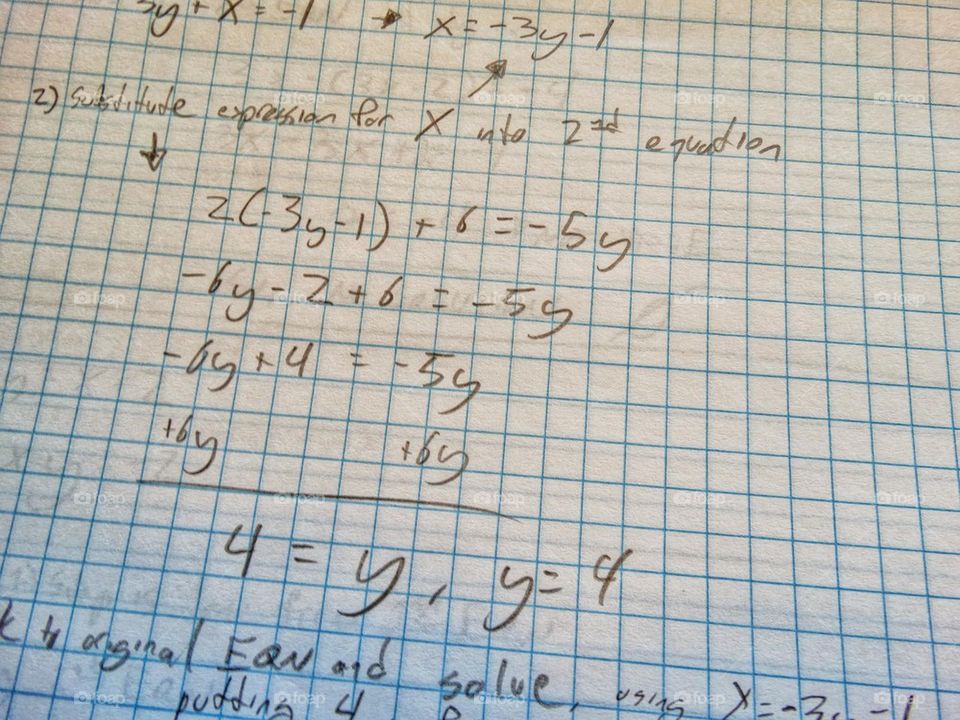 3y + x = -1 → x = -3y - 1
2) substitute expression for X into 2nd equation
2(-3y-1) + 6 = -5y
-6y - 2 + 6 = -5y
-6y + 4 = -5y
+6y +6y
4 = y, y = 4
original Eqn and solve, using x = -3y -
4